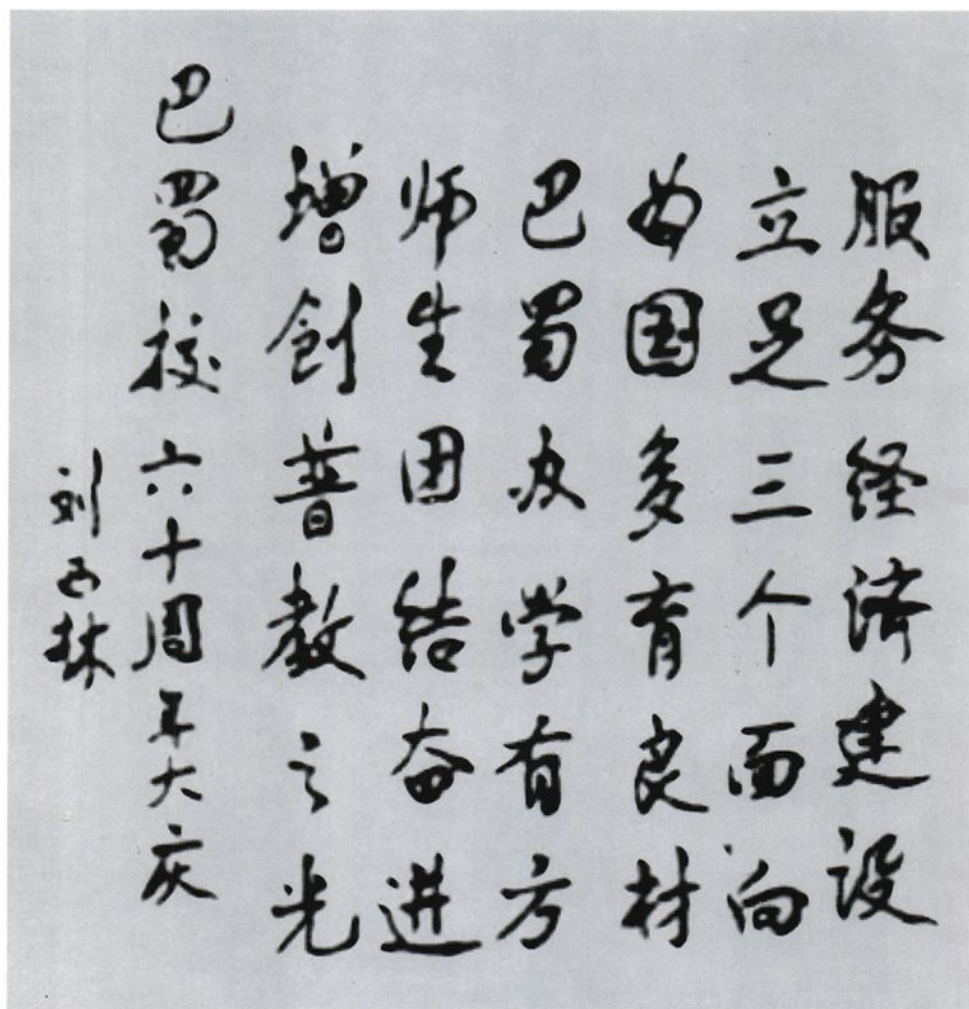 服务经济建设
立足三个面向
为国多育良材
巴蜀办学有方
师生团结奋进
增创普教之光
巴蜀校六十周年大庆
刘西林